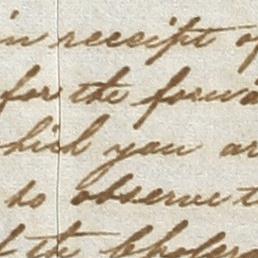 in receipt of
for the forwa
hich you ar
to observe t
the Cholera